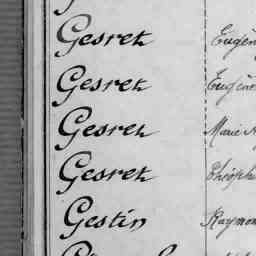 Gesret Eugèn
Gesret Eugèn
Gesret Marie
Gesret Théoph
Gestin Raymon